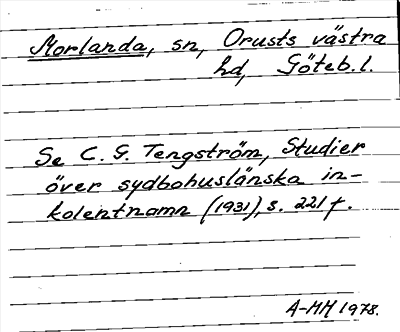 Morlanda, sn, Orusts västra
hd, Göteb. l.
Se C. G. Tengström, Studier
över sydbohuslänska in-
kolentnamn (1931), s. 221 f.
A-MH 1978.